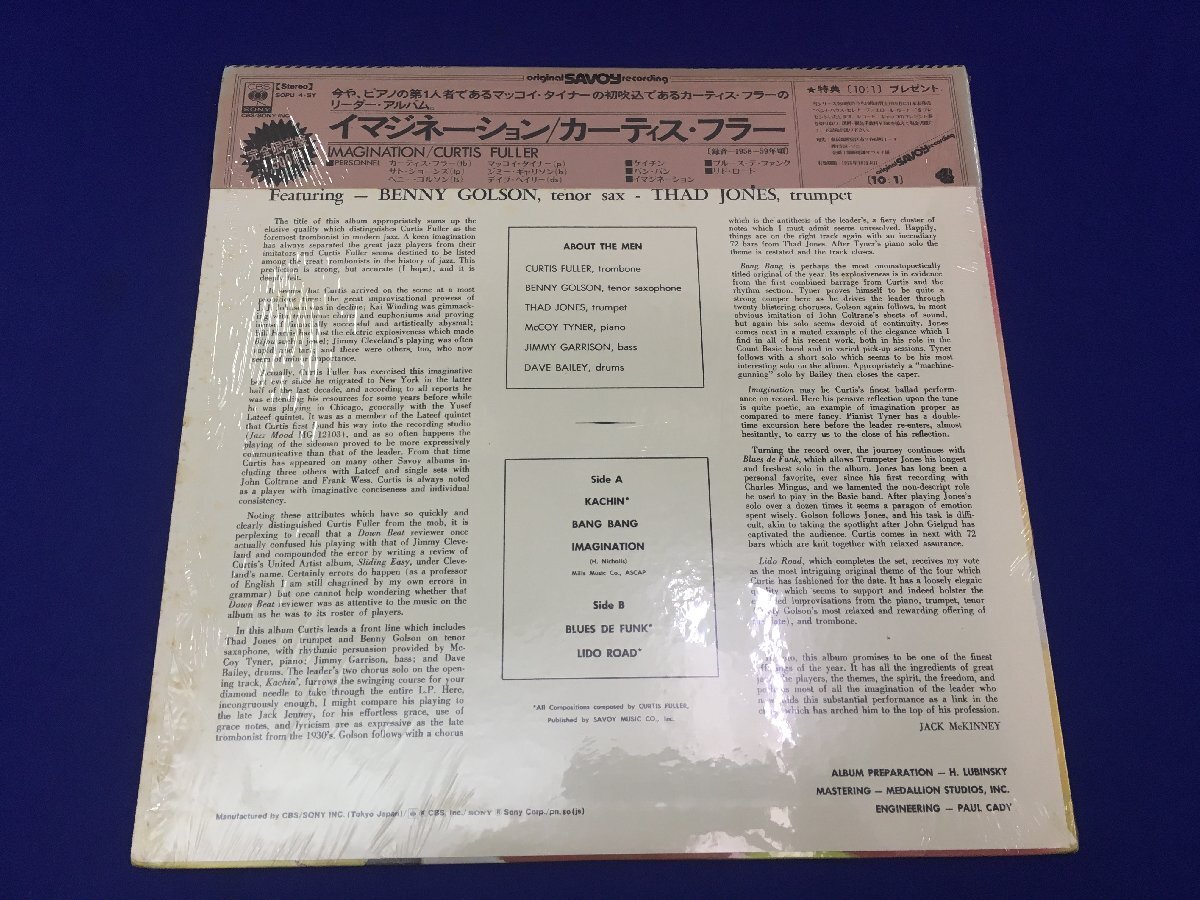 original SAVOY recording
CBS
SONY
CBS/SONY INC.
【Stereo】
SOPU 4-SY
今や、ピアノの第1人者であるマッコイ・タイナーの初吹込であるカーティス・フラーの
リーダー・アルバム。
イマジネーション/カーティス・フラー
IMAGINATION/CURTIS FULLER
■PERSONNEL カーティス・フラー(tb) マッコイ・タイナー(p)
サド・ジョーンズ(tp) ジミー・ギャリソン(b)
ベニー・ゴルソン(ts) デイブ・ベイリー(ds)
■ケイチン
■バン・バン
■イマジネーション
■ブルース・デ・ファンク
■リド・ロード
★特典【10:1】プレゼント
original SAVOY recording
(10:1)
4
Featuring — BENNY GOLSON, tenor sax - THAD JONES, trumpet
The title of this album appropriately sums up the
elusive quality which distinguishes Curtis Fuller as the
foremost trombonist in modern jazz. A keen imagination
has always separated the great jazz players from their
imitators and Curtis Fuller seems destined to be listed
among the great trombonists in the history of jazz. This
prediction is strong, but accurate (I hope), and it is
deeply felt.
It seems that Curtis arrived on the scene at a most
the great improvisational prowess of
in decline; Kai Winding was gimmick-
and euphoniums and proving
successful and artistically abysmal;
the electric explosiveness which made
Jimmy Cleveland's playing was often
and there were others, too, who now
seem of minor importance.
Actually, Curtis Fuller has exercised this imaginative
ever since he migrated to New York in the latter
half of the last decade, and according to all reports he
was extending his resources for some years before while
he was playing in Chicago, generally with the Yusef
Lateef quintet. It was as a member of the Lateef quintet
that Curtis first found his way into the recording studio
(Jazz Mood MG 12103), and as so often happens the
playing of the sideman proved to be more expressively
communicative than that of the leader. From that time
Curtis has appeared on many other Savoy albums in-
cluding three others with Lateef and single sets with
John Coltrane and Frank Wess. Curtis is always noted
as a player with imaginative conciseness and individual
consistency.
Noting these attributes which have so quickly and
clearly distinguished Curtis Fuller from the mob, it is
perplexing to recall that a Down Beat reviewer once
actually confused his playing with that of Jimmy Cleve-
land and compounded the error by writing a review of
Curtis's United Artist album, Sliding Easy, under Cleve-
land's name. Certainly errors do happen (as a professor
of English I am still chagrined by my own errors in
grammar) but one cannot help wondering whether that
Down Beat reviewer was as attentive to the music on the
album as he was to his roster of players.
In this album Curtis leads a front line which includes
Thad Jones on trumpet and Benny Golson on tenor
saxophone, with rhythmic persuasion provided by Mc-
Coy Tyner, piano; Jimmy Garrison, bass; and Dave
Bailey, drums. The leader's two chorus solo on the open-
ing track, Kachin', furrows the swinging course for your
diamond needle to take through the entire L.P. Here,
incongruously enough, I might compare his playing to
the late Jack Jenney, for his effortless grace, use of
grace notes, and lyricism are as expressive as the late
trombonist from the 1930's. Golson follows with a chorus
ABOUT THE MEN
CURTIS FULLER, trombone
BENNY GOLSON, tenor saxophone
THAD JONES, trumpet
McCOY TYNER, piano
JIMMY GARRISON, bass
DAVE BAILEY, drums
Side A
KACHIN*
BANG BANG
IMAGINATION
(H. Nicholls)
Mills Music Co., ASCAP
Side B
BLUES DE FUNK*
LIDO ROAD*
*All Compositions composed by CURTIS FULLER,
Published by SAVOY MUSIC CO., Inc.
which is the antithesis of the leader's, a fiery cluster of
notes which I must admit seems unresolved. Happily,
things are on the right track again with an incendiary
72 bars from Thad Jones. After Tyner's piano solo the
theme is restated and the track closes.
Bang Bang is perhaps the most onomatopoetically
titled original of the year. Its explosiveness is in evidence
from the first combined barrage from Curtis and the
rhythm section. Tyner proves himself to be quite a
strong comper here as he drives the leader through
twenty blistering choruses. Golson again follows, in most
obvious imitation of John Coltrane's sheets of sound,
but again his solo seems devoid of continuity. Jones
comes next in a muted example of the elegance which I
find in all of his recent work, both in his role in the
Count Basie band and in varied pick-up sessions. Tyner
follows with a short solo which seems to be his most
interesting solo on the album. Appropriately a "machine-
gunning" solo by Bailey then closes the caper.
Imagination may be Curtis's finest ballad perform-
ance on record. Here his pensive reflection upon the tune
is quite poetic, an example of imagination proper as
compared to mere fancy. Pianist Tyner has a double-
time excursion here before the leader re-enters, almost
hesitantly, to carry us to the close of his reflection.
Turning the record over, the journey continues with
Blues de Funk, which allows Trumpeter Jones his longest
and freshest solo in the album. Jones has long been a
personal favorite, ever since his first recording with
Charles Mingus, and we lamented the non-descript role
he used to play in the Basie band. After playing Jones's
solo over a dozen times it seems a paragon of emotion
spent wisely. Golson follows Jones, and his task is diffi-
cult, akin to taking the spotlight after John Gielgud has
captivated the audience. Curtis comes in next with 72
bars which are knit together with relaxed assurance.
Lido Road, which completes the set, receives my vote
as the most intriguing original theme of the four which
Curtis has fashioned for the date. It has a loosely elegaic
quality which seems to support and indeed bolster the
improvisations from the piano, trumpet, tenor
Golson's most relaxed and rewarding offering of
date), and trombone.
this album promises to be one of the finest
of the year. It has all the ingredients of great
the players, the themes, the spirit, the freedom, and
most of all the imagination of the leader who
this substantial performance as a link in the
which has arched him to the top of his profession.
JACK McKINNEY
ALBUM PREPARATION — H. LUBINSKY
MASTERING — MEDALLION STUDIOS, INC.
ENGINEERING — PAUL CADY
Manufactured by CBS/SONY INC. (Tokyo Japan)/ CBS, Inc./ SONY ® Sony Corp./pn.so(js)